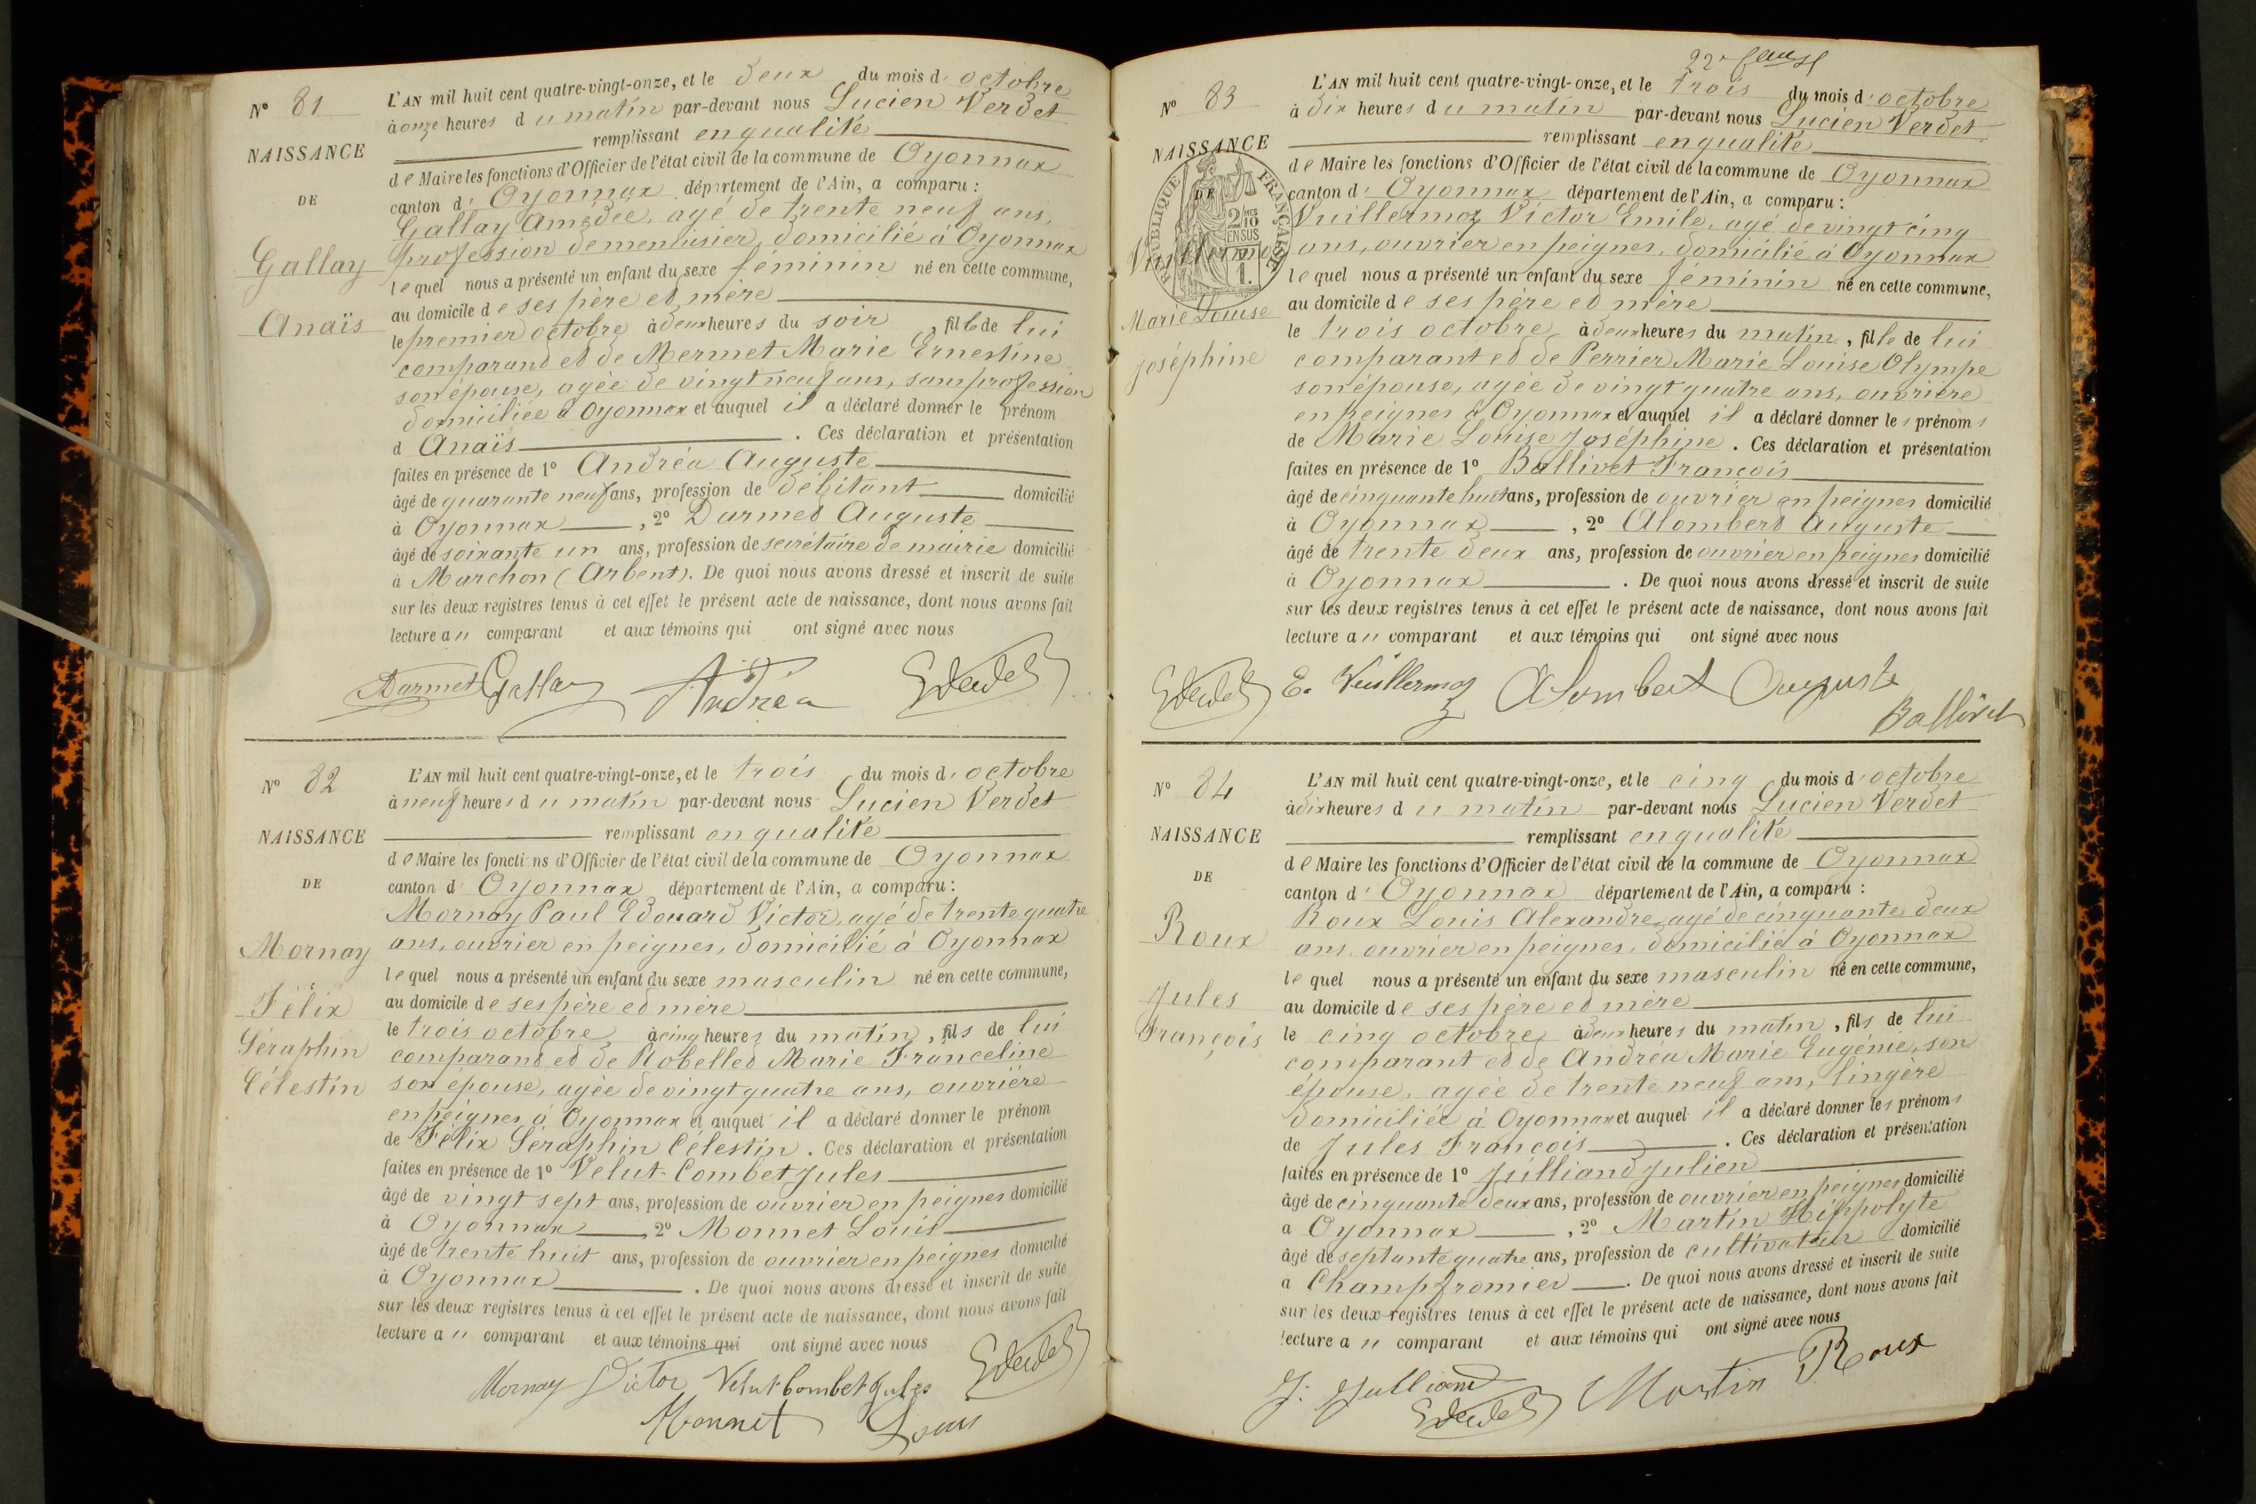 N° 81
NAISSANCE
DE
Gallay
Anaïs
L'AN mil huit cent quatre-vingt-onze, et le deux du mois d'octobre
à onze heures du matin par-devant nous Lucien Verdet
remplissant en qualité
de Maire les fonctions d'Officier de l'état civil de la commune de Oyonnax
canton d'Oyonnax département de l'Ain, a comparu :
Gallay Amédée, agé de trente neuf ans,
profession de menuisier, domicilié à Oyonnax
lequel nous a présenté un enfant du sexe féminin né en cette commune,
au domicile de ses père et mère
le premier octobre à deux heures du soir, fille de lui
comparant et de Mermet Marie Ernestine
son épouse, agée de vingt neuf ans, sans profession
domiciliée à Oyonnax et auquel il a déclaré donner le prénom
d Anaïs. Ces déclaration et présentation
faites en présence de 1° Andréa Auguste
âgé de quarante neuf ans, profession de débitant domicilié
à Oyonnax, 2° Darmet Auguste
âgé de soixante un ans, profession de secrétaire de mairie domicilié
à Marchon (Arbent). De quoi nous avons dressé et inscrit de suite
sur les deux registres tenus à cet effet le présent acte de naissance, dont nous avons fait
lecture au comparant et aux témoins qui ont signé avec nous
Darmet Gallay Andréa
N° 82
NAISSANCE
DE
Mornay
Félix
Séraphin
Célestin
L'AN mil huit cent quatre-vingt-onze, et le trois du mois d'octobre
à neuf heures du matin par-devant nous Lucien Verdet
remplissant en qualité
de Maire les fonctions d'Officier de l'état civil de la commune de Oyonnax
canton d'Oyonnax département de l'Ain, a comparu :
Mornay Paul Edouard Victor, agé de trente quatre
ans, ouvrier en peignes, domicilié à Oyonnax
lequel nous a présenté un enfant du sexe masculin né en cette commune,
au domicile de ses père et mère
le trois octobre à cinq heures du matin, fils de lui
comparant et de Robellet Marie Franceline
son épouse, agée de vingt quatre ans, ouvrière
en peignes à Oyonnax et auquel il a déclaré donner le prénom
de Félix Séraphin Célestin. Ces déclaration et présentation
faites en présence de 1° Velut-Combet Jules
âgé de vingt sept ans, profession de ouvrier en peignes domicilié
à Oyonnax 2° Monnet Louis
âgé de trente huit ans, profession de ouvrier en peignes domicilié
à Oyonnax. De quoi nous avons dressé et inscrit de suite
sur les deux registres tenus à cet effet le présent acte de naissance, dont nous avons fait
lecture au comparant et aux témoins qui ont signé avec nous
Mornay Victor Velut Combet Jules
Monnet Louis
N° 83
NAISSANCE
DE
RÉPUBLIQUE FRANÇAISE
2/10
EN SUS
Vuillermoz
Marie Louise
Joséphine
L'AN mil huit cent quatre-vingt-onze, et le trois du mois d'octobre
à dix heures du matin par-devant nous Lucien Verdet
remplissant en qualité
de Maire les fonctions d'Officier de l'état civil de la commune de Oyonnax
canton d'Oyonnax département de l'Ain, a comparu :
Vuillermoz Victor Emile, agé de vingt cinq
ans, ouvrier en peignes, domicilié à Oyonnax
lequel nous a présenté un enfant du sexe féminin né en cette commune,
au domicile de ses père et mère
le trois octobre à deux heures du matin, fille de lui
comparant et de Perrier Marie Louise Olympe
son épouse, agée de vingt quatre ans, ouvrière
en peignes à Oyonnax et auquel il a déclaré donner les prénoms
de Marie Louise Joséphine. Ces déclaration et présentation
faites en présence de 1° Ballivet François
âgé de cinquante huit ans, profession de ouvrier en peignes domicilié
à Oyonnax, 2° Alombert Auguste
âgé de trente deux ans, profession de ouvrier en peignes domicilié
à Oyonnax. De quoi nous avons dressé et inscrit de suite
sur les deux registres tenus à cet effet le présent acte de naissance, dont nous avons fait
lecture au comparant et aux témoins qui ont signé avec nous
E. Vuillermoz Alombert Auguste
Ballivet
N° 84
NAISSANCE
DE
Roux
Jules
François
L'AN mil huit cent quatre-vingt-onze, et le cinq du mois d'octobre
à dix heures du matin par-devant nous Lucien Verdet
remplissant en qualité
de Maire les fonctions d'Officier de l'état civil de la commune de Oyonnax
canton d'Oyonnax département de l'Ain, a comparu :
Roux Louis Alexandre, agé de cinquante deux
ans, ouvrier en peignes, domicilié à Oyonnax
lequel nous a présenté un enfant du sexe masculin né en cette commune,
au domicile de ses père et mère
le cinq octobre à deux heures du matin, fils de lui
comparant et de Andréa Marie Eugénie, son
épouse, agée de trente neuf ans, lingère
domiciliée à Oyonnax et auquel il a déclaré donner les prénoms
de Jules François. Ces déclaration et présentation
faites en présence de 1° Juilliand Julien
âgé de cinquante deux ans, profession de ouvrier en peignes domicilié
à Oyonnax, 2° Martin Hippolyte
âgé de septante quatre ans, profession de cultivateur domicilié
à Champfromier. De quoi nous avons dressé et inscrit de suite
sur les deux registres tenus à cet effet le présent acte de naissance, dont nous avons fait
lecture au comparant et aux témoins qui ont signé avec nous
J. Julliand Martin Roux